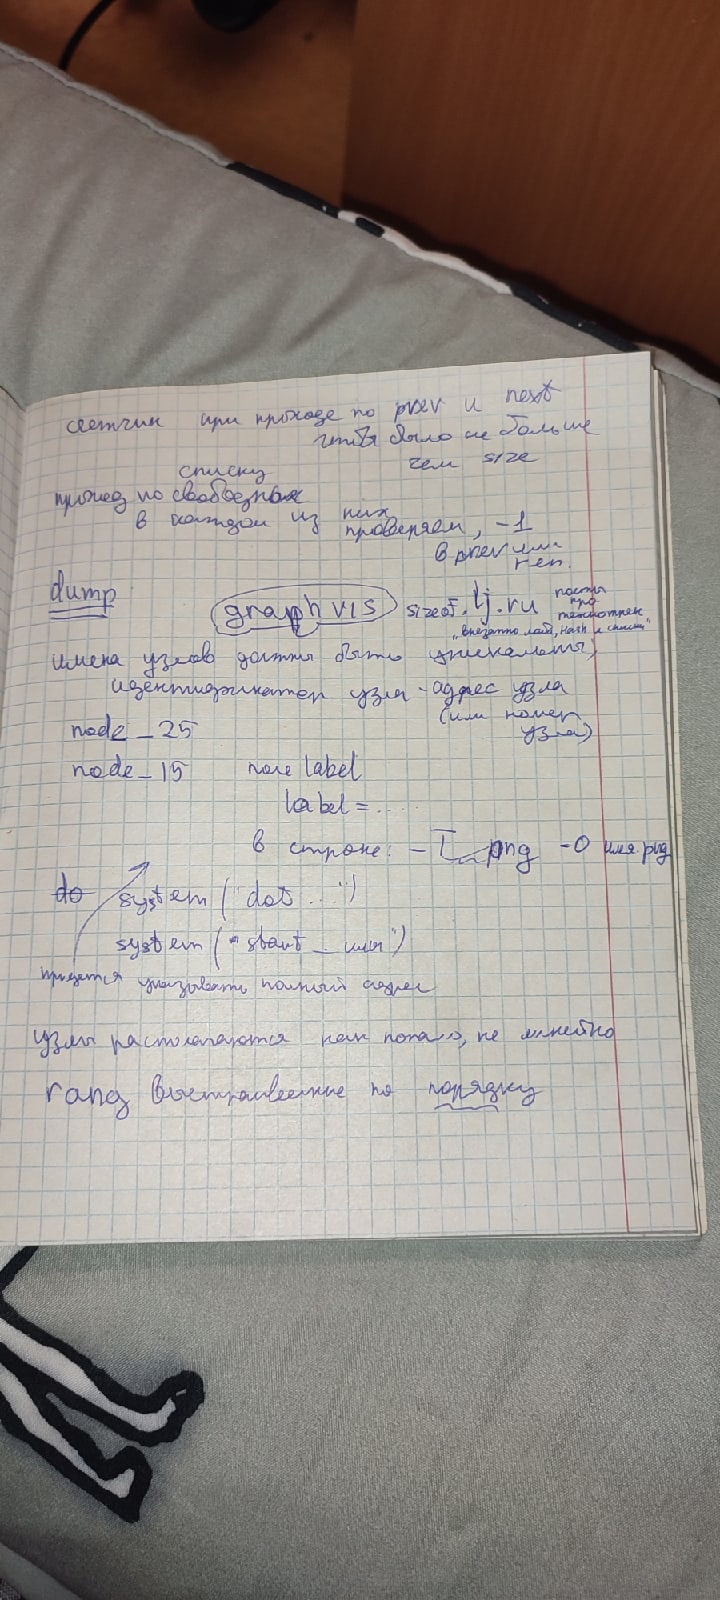 счетчик при проходе по prev и next
чтобы было не больше
чем size
списку
проход по свободным
в каждом из них проверяем, -1
в prev или
dump
graph vis sizeof.lj.ru посты
про
имена узлов должны быть уникальны,
идентификатор узла - адрес узла
(или номер
узла)
node_25
node_15 поле label
label = ....
в строке: -T png -O имя.png
do system("dot ...")
system("start_имя")
придется указывать полный адрес
узлы располагаются как попало, не линейно
rang выстраивание по порядку